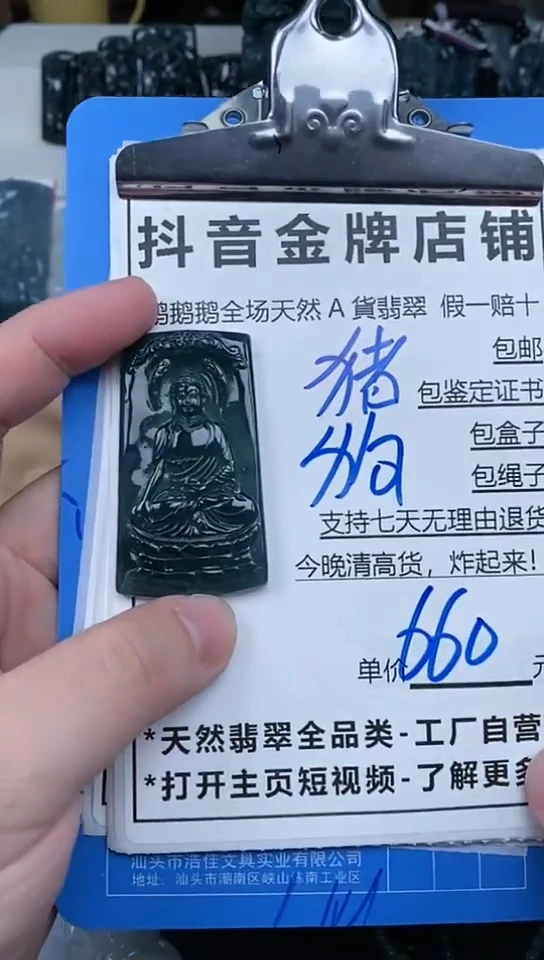 抖音金牌店铺
鹅鹅鹅全场天然A貨翡翠 假一赔十
猪
狗
包邮
包鉴定证书
包盒子
包绳子
支持七天无理由退货
今晚清高货，炸起来!
单价 660 元
*天然翡翠全品类-工厂自营
*打开主页短视频-了解更多
汕头市浩佳文具实业有限公司
地址：汕头市潮南区峡山练南工业区